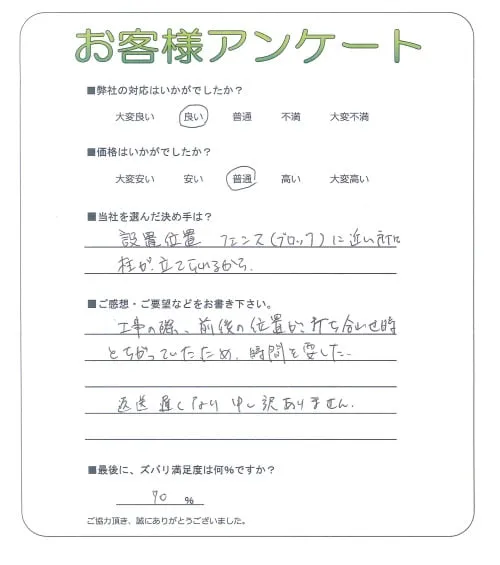 お客様アンケート
■弊社の対応はいかがでしたか？
大変良い 良い 普通 不満 大変不満
■価格はいかがでしたか？
大変安い 安い 普通 高い 大変高い
■当社を選んだ決め手は？
設置位置 フェンス(ブロック)に近い所に
柱が立てられるから.
■ご感想・ご要望などをお書き下さい。
工事の際、前後の位置が、打ち合わせ時
とちがっていたため、時間を要した.
返送遅くなり申し訳ありません.
■最後に、ズバリ満足度は何%ですか？
70 %
ご協力頂き、誠にありがとうございました。